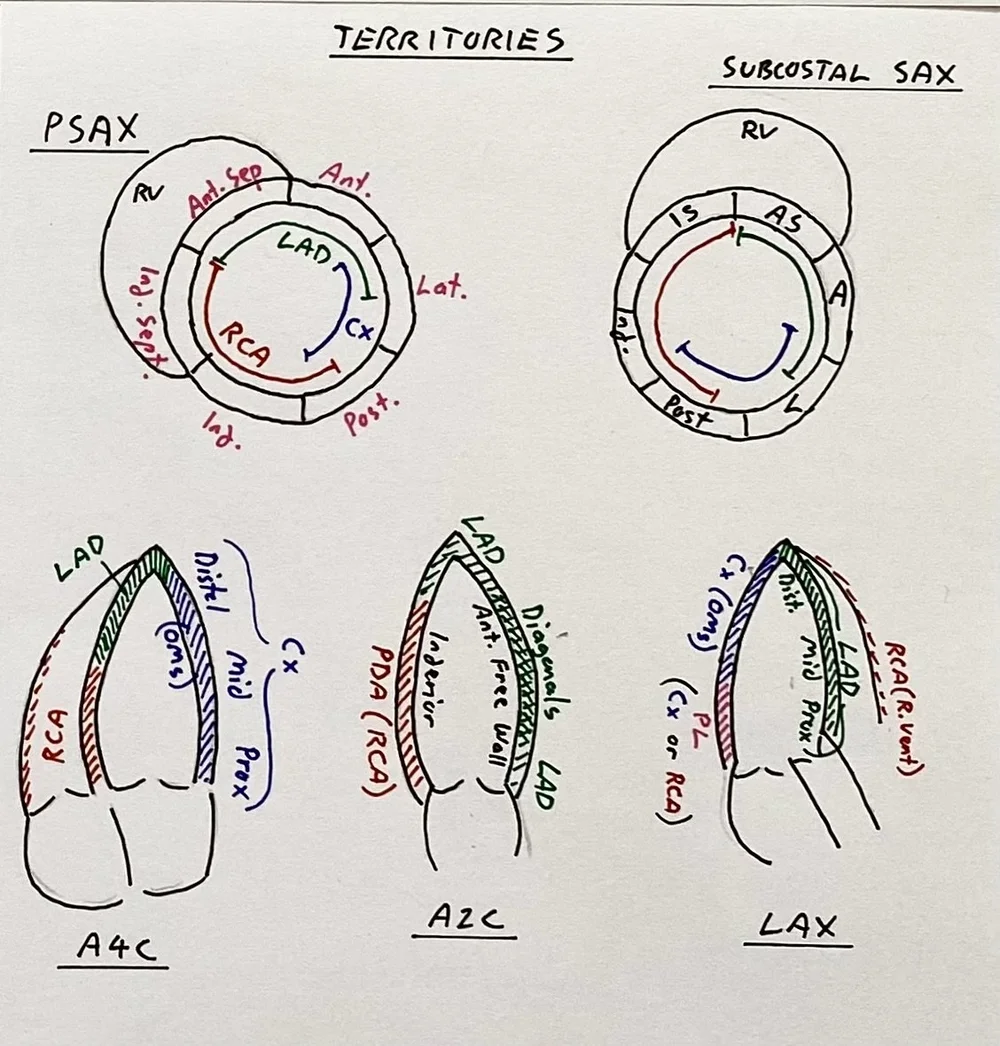 TERRITORIES
SUBCOSTAL SAX
PSAX
RV
Ant. Sep
Ant.
Lat.
Post.
Inf.
Inf. Sept.
LAD
Cx
RCA
RV
IS
AS
A
L
Post
Inf.
LAD
RCA
Distel
(OMs)
Mid
Prox
Cx
A4C
LAD
Diagonals
LAD
Ant. Free Wall
Inferior
PDA (RCA)
A2C
Cx (OMs)
PL
(Cx or RCA)
Dist.
Mid
Prox
LAD
RCA (R.Vent)
LAX